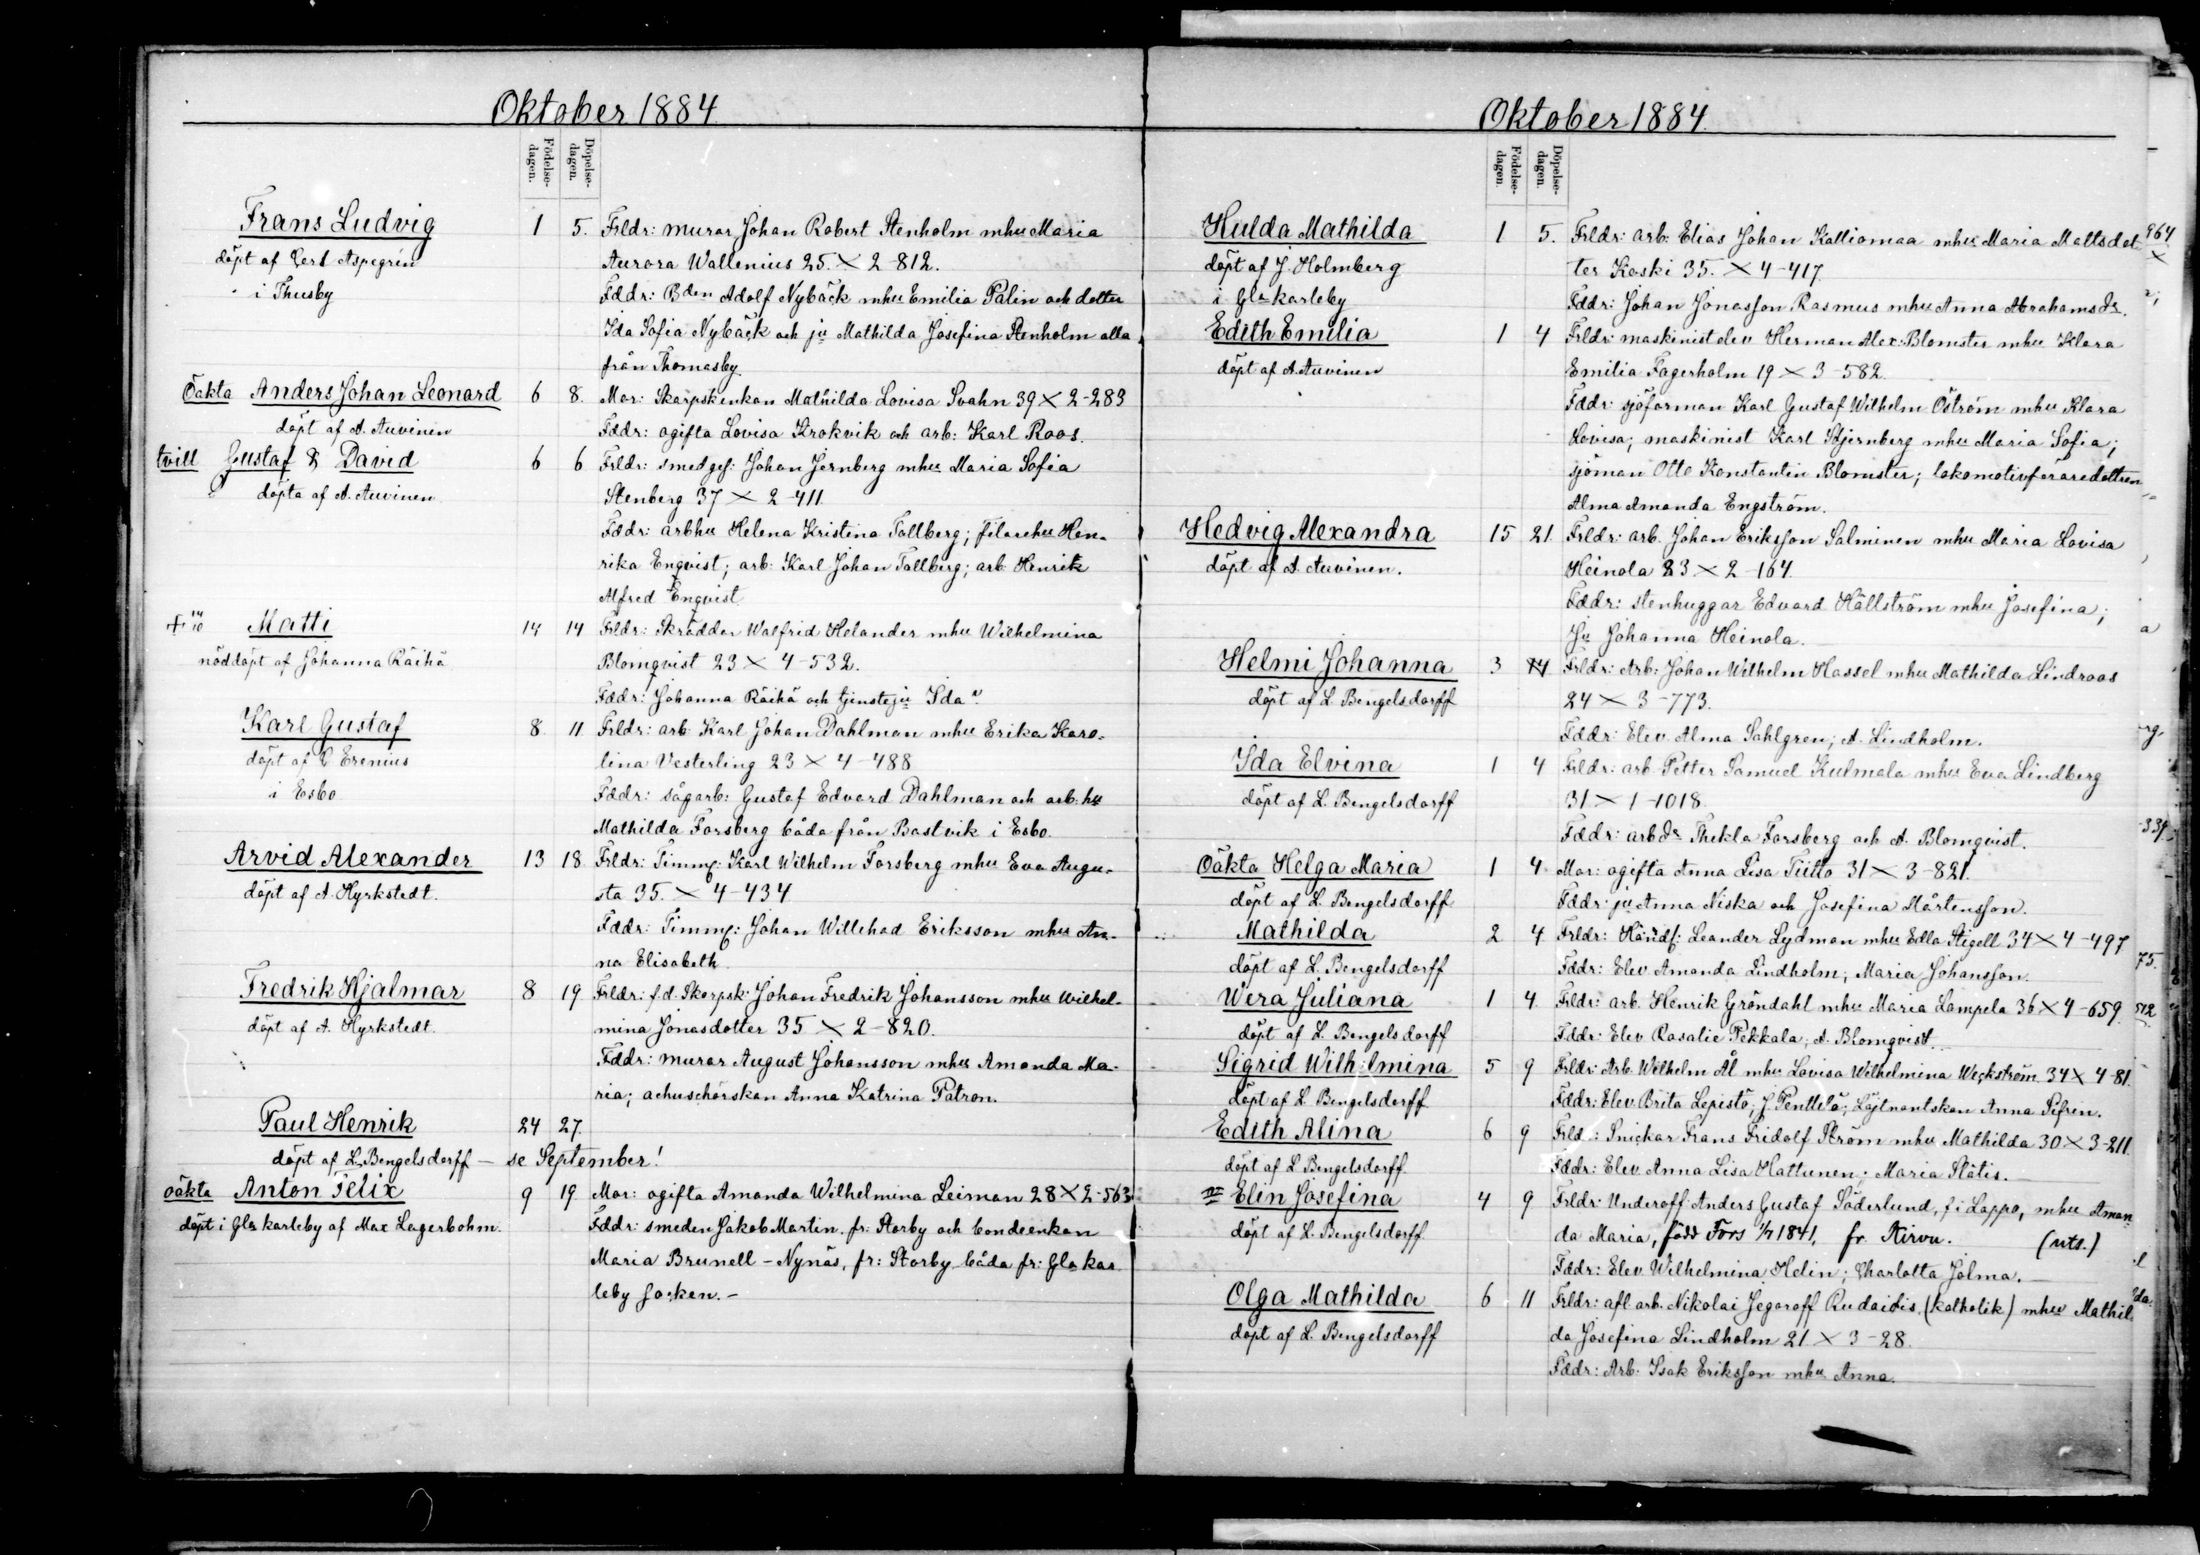 Oktober 1884.
Födelse-
dagen.
Döpelse-
dagen.
Frans Ludvig
döpt af Gert Aspegrén
i Thusby
1 5. Frldr: murar Johan Robert Stenholm mhu Maria
Aurora Wallenius 25. X 2-812.
Fddr: Bden Adolf Nybäck mhu Emilia Palin och dotter
Ida Sofia Nybäck och ju Mathilda Josefina Stenholm alla
från Thomasby.
Oäkta Anders Johan Leonard
döpt af A. Auvinen
6 8. Mor: Skarpskenkan Mathilda Lovisa Svahn 39 X 2-283
Fddr: ogifta Lovisa Krokvik och arb: Karl Roos.
tvill Gustaf & David
döpta af A. Auvinen
6 6 Frldr: smedges: Johan Jernberg mhu Maria Sofia
Stenberg 37 X 2-411.
Fddr: arbhu Helena Kristina Tallberg; filarehu Hen-
rika Enqvist; arb: Karl Johan Tallberg; arb Henrik
Alfred Enqvist
+ 14/10 Matti
nöddöpt af Johanna Räihä
14 14 Frldr: Skrädder Walfrid Helander mhu Wilhelmina
Blomqvist 23 X 4-532.
Fddr: Johanna Räihä och tjensteju Ida
Karl Gustaf
döpt af Erenius
i Esbo
8 11 Frldr: arb Karl Johan Dahlman mhu Erika Karo-
lina Vesterling 23 X 4-488
Fddr: sågarb: Gustaf Edvard Dahlman och arb: hu
Mathilda Forsberg båda från Bastvik i Esbo.
Arvid Alexander
döpt af A. Hyrkstedt.
13 18 Frldr: Timmg: Karl Wilhelm Forsberg mhu Eva Augu-
sta 35. X 4-434
Fddr: Timmg: Johan Willehad Eriksson mhu An-
na Elisabeth
Fredrik Hjalmar
döpt af A. Hyrkstedt.
8 19 Frldr: f.d. Skarpsk: Johan Fredrik Johansson mhu Wilhel-
mina Jonasdotter 35 X 2-820.
Fddr: murar August Johansson mhu Amanda Ma-
ria; achuschörskan Anna Katrina Patron.
Paul Henrik
24 27.
döpt af L. Bengelsdorff - se September!
Oäkta Anton Felix
döpt i Gla karleby af Max Lagerbohm.
9 19 Mor: ogifta Amanda Wilhelmina Leiman 28 X 2-563
Fddr: smeden Jakob Martin. fr: Storby och bondeenkan
Maria Brunell - Nynäs, fr: Storby båda fr: Gla kar
leby socken.-
Oktober 1884.
Födelse-
dagen.
Döpelse-
dagen.
Hulda Mathilda
döpt af J. Holmberg
i Gla karleby
1 5. Frldr: arb: Elias Johan Kalliomaa mhu Maria Mattsdot
ter Koski 35. X 4-417.
Fddr: Johan Jonasson Rasmus mhu Anna Abrahamsdr.
Edith Emilia
döpt af A. Auvinen
1 4 Frldr: maskinistelev Herman Alex: Blomster mhu Klara
Emilia Fagerholm 19 X 3-582.
Fddr sjöforman Karl Gustaf Wilhelm Öström mhu Klara
Lovisa; maskinist Karl Stjernberg mhu Maria Sofia;
sjöman Otto Konstantin Blomster; lokomotivföraredottren
Alma Amanda Engström.
Hedvig Alexandra
döpt af A. Auvinen.
15 21. Frldr: arb. Johan Eriksson Salminen mhu Maria Lovisa
Heinola 23 X 2-164.
Fddr: stenhuggar Edvard Hällström mhu Josefina;
Ju Johanna Heinola.
Helmi Johanna
döpt af L. Bengelsdorff
3 4 Frldr: Arb: Johan Wilhelm Hassel mhu Mathilda Lindroos
24 X 3-773.
Fddr: Elev Alma Sahlgren; A. Lindholm.
Ida Elvina
döpt af L. Bengelsdorff
1 4 Frldr: arb Petter Samuel Kulmala mhu Eva Lindberg
31 X 1-1018.
Fddr: arb dr Thekla Forsberg och A. Blomqvist.
Oäkta Helga Maria
döpt af L. Bengelsdorff
1 4 Mor: ogifta Anna Lisa Tiitto 31 X 3-821.
Fddr: ju Anna Niska och Josefina Mårtensson.
Mathilda
döpt af L. Bengelsdorff
2 4 Frldr: Handl: Leander Lydman mhu Edla Stigell 34 X 4-497
Fddr: Elev Amanda Lindholm; Maria Johansson.
Wera Juliana
döpt af L. Bengelsdorff
1 4 Frldr: arb. Henrik Gröndahl mhu Maria Lampela 36 X 4-659.
Fddr: Elev Rosalie Pekkala; A. Blomqvist.
Sigrid Wilhelmina
döpt af L. Bengelsdorff
5 9 Frldr: Arb. Wilhelm Ål mhu Lovisa Wilhelmina Weckström 34 X 4-81.
Fddr: Elev Brita Lepistö; J. Penttilä; Löjtnantskan Anna Sifrin.
Edith Alina
döpt af L. Bengelsdorff
6 9 Frld: Snickar Frans Fridolf Ström mhu Mathilda 30 X 3-211.
Fddr: Elev Anna Lisa Hattunen; Maria Stätis.
Elin Josefina
döpt af L. Bengelsdorff
4 9 Frldr: Underoff Anders Gustaf Söderlund, f i Lappo, mhu Aman
da Maria, född Fors 1/7 1841, fr. Kirvu. (uts.)
Fddr: Elev Wilhelmina Helin; Charlotta Jolma.
Olga Mathilda
döpt af L. Bengelsdorff
6 11 Frldr: afl arb. Nikolai Jegoroff Rudaidis (katholik) mhu Mathil
da Josefina Lindholm 21 X 3-28.
Fddr: Arb: Isak Eriksson mhu Anna.